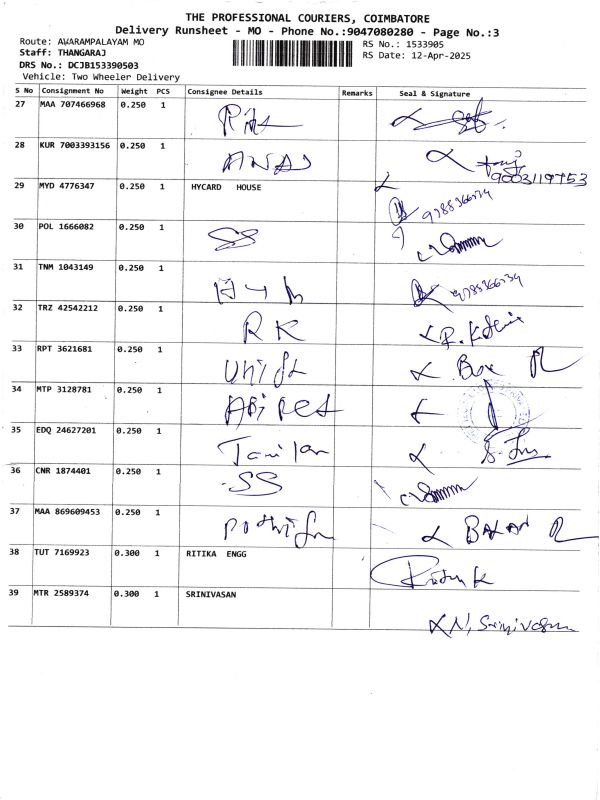 THE PROFESSIONAL COURIERS, COIMBATORE
Delivery Runsheet - MO - Phone No.:9047080280 - Page No.:3
Route: AWARAMPALAYAM MO
Staff: THANGARAJ
DRS No.: DCJB153390503
Vehicle: Two Wheeler Delivery
RS No.: 1533905
RS Date: 12-Apr-2025
S No Consignment No Weight PCS Consignee Details Remarks Seal & Signature
27 MAA 707466968 0.250 1
28 KUR 7003393156 0.250 1 ANAS
9003119753
29 MYD 4776347 0.250 1 HYCARD HOUSE
9788366734
30 POL 1666082 0.250 1 SS
31 TNM 1043149 0.250 1
9788366734
32 TRZ 42542212 0.250 1 RK
33 RPT 3621681 0.250 1
34 MTP 3128781 0.250 1
35 EDQ 24627201 0.250 1
36 CNR 1874401 0.250 1 SS
37 MAA 869609453 0.250 1
38 TUT 7169923 0.300 1 RITIKA ENGG
39 MTR 2589374 0.300 1 SRINIVASAN
N. Srinivasan